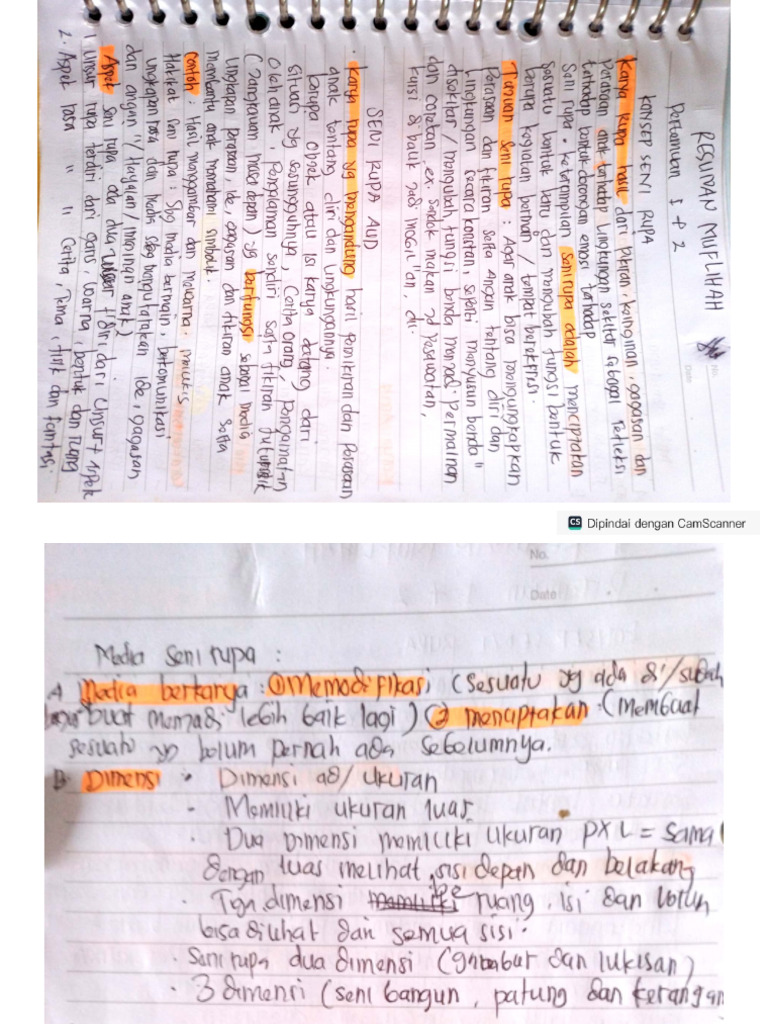 RESUMAN MUFLIHAH
No.
Date
Pertemuan 1 + 2
KONSEP SENI RUPA
Karya Rupa hasil dari Pikiran, keinginan, gagasan dan
Perasaan anak terhadap lingkungan sekitar sebagai refleksi
terhadap bentuk dorongan emosi terhadap
Seni rupa. keterampilan seni rupa adalah menciptakan
sesuatu bentuk baru dan mengubah fungsi bentuk
berupa kegiatan / tempat berekspresi.
Tujuan Seni rupa : Agar anak bisa mengungkapkan
Perasaan dan fikiran serta angan tentang diri dan
lingkungan secara konkret, seperti menyusun benda"
disekitar / mengubah fungsi benda menjadi Permainan
dan coretan, ex. Sendok makan jd Pesawatan,
kursi di balik jadi mobil"an, dll.
SENI RUPA AUD
• karya rupa yg mengandung hasil Pemikiran dan Perasaan
anak tentang diri dan lingkungannya.
berupa objek atau isi karya datang dari
situasi yg sesungguhnya, cerita orang, Pengamatan
oleh anak, Pengalaman sendiri serta fikiran futuristik
(Jangkauan masa depan) yg berfungsi sebagai media
ungkapan perasaan, ide, gagasan dan fikiran anak serta
membantu anak memahami simbolik.
Contoh : Hasil menggambar dan mewarnai, melukis
Hakikat seni rupa : Sbg media bermain, berkomunikasi
ungkapan rasa dan media sbg mengutarakan ide, gagasan
dan angan"/(hayalan / imajinasi anak)
Aspek seni rupa ada dua tdiri dari unsur + aspek
1. Unsur rupa terdiri dari garis, warna, bentuk dan ruang
2. Aspek rasa " " Cerita, Tema, lirik dan fantasi
CS Dipindai dengan CamScanner
No.
Date
Media seni rupa :
A Media berkarya : ① Memodifikasi (sesuatu yg ada di/sudah
buat menjadi lebih baik lagi) ② menciptakan (membuat
sesuatu yg belum pernah ada sebelumnya.
B. Dimensi • Dimensi ad/ ukuran
• Memiliki ukuran luas
• Dua Dimensi memiliki ukuran P X L = sama
dengan luas melihat sisi depan dan belakang
• Tiga dimensi ruang, isi dan
bisa dilihat dari semua sisi.
• Seni rupa dua dimensi (gambar dan lukisan)
• 3 dimensi (seni bangun, patung dan kerangan